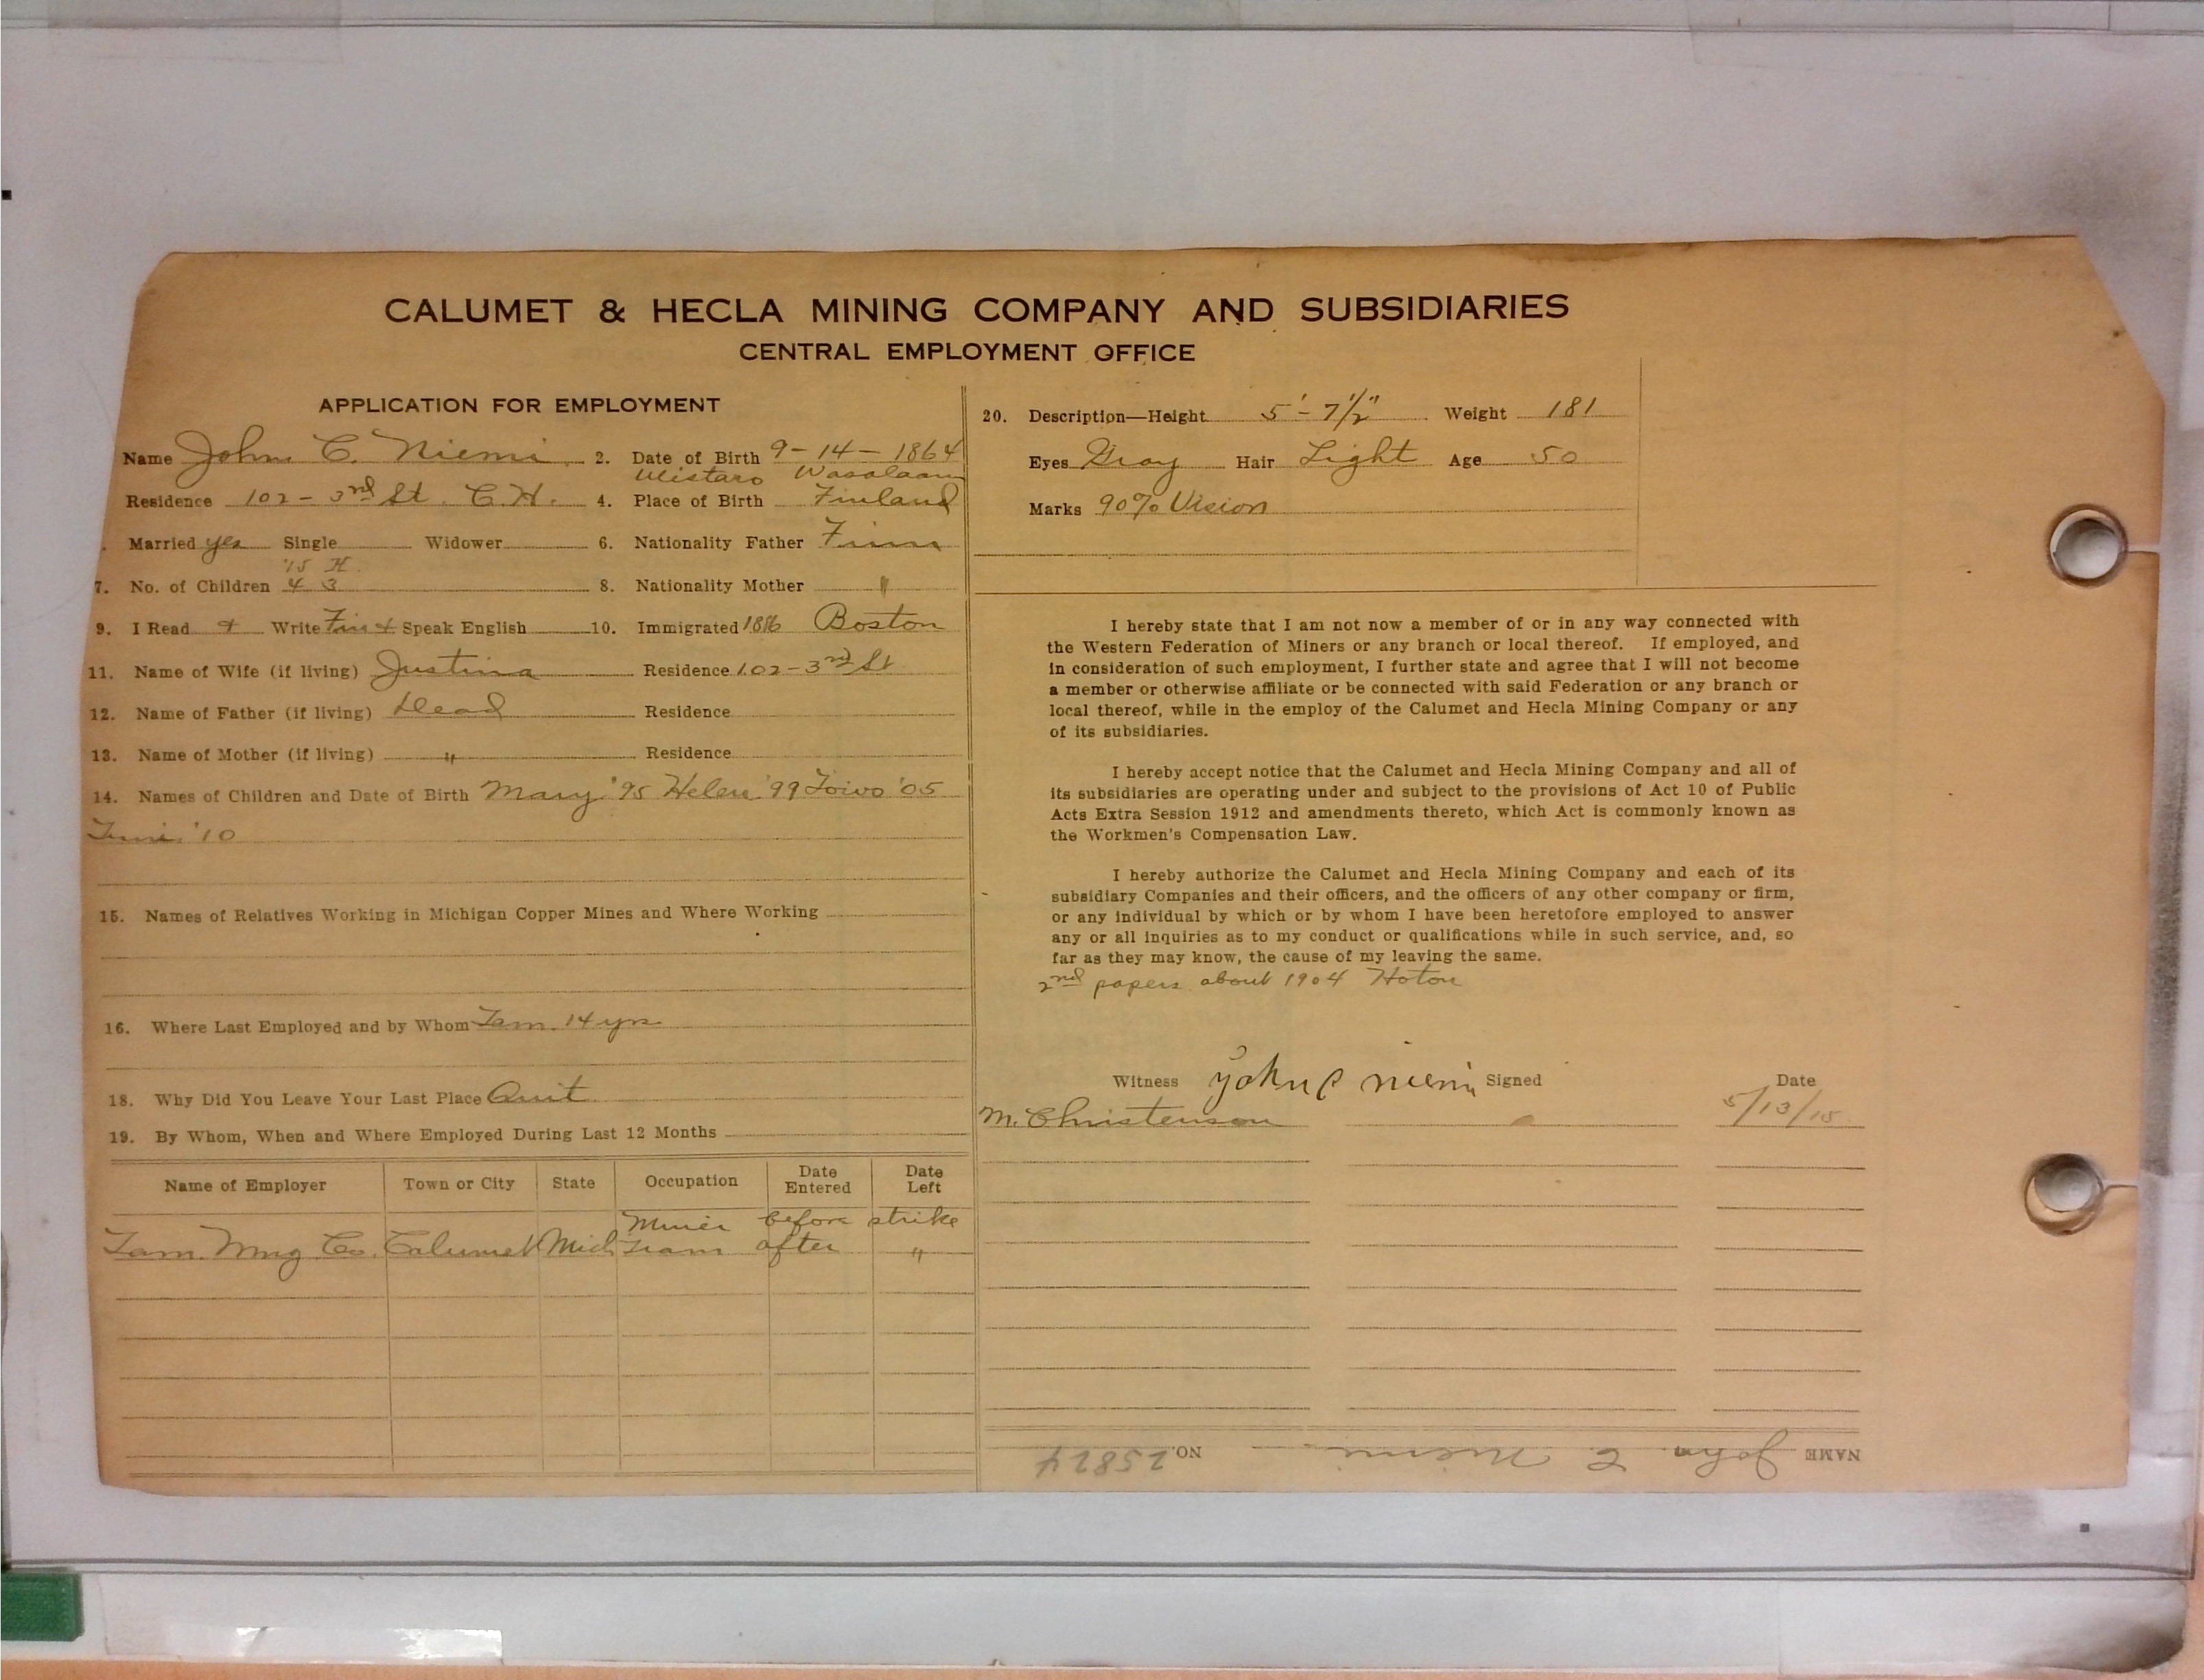 CALUMET & HECLA MINING COMPANY AND SUBSIDIARIES
CENTRAL EMPLOYMENT OFFICE
APPLICATION FOR EMPLOYMENT
Name John C. Niemi 2. Date of Birth 9-14-1864
Residence 102-3rd St. C.H. 4. Place of Birth Finland
Married yes Single Widower 6. Nationality Father Finn
'15 H.
7. No. of Children 4 3 8. Nationality Mother "
9. I Read & Write Finn & Speak English 10. Immigrated Boston
11. Name of Wife (if living) Justina Residence 102-3rd St
12. Name of Father (if living) Dead Residence
13. Name of Mother (if living) " Residence
14. Names of Children and Date of Birth Mary '95 Helen '99 Toivo '05
'10
15. Names of Relatives Working in Michigan Copper Mines and Where Working
16. Where Last Employed and by Whom Tam. 14 yrs
18. Why Did You Leave Your Last Place Quit
19. By Whom, When and Where Employed During Last 12 Months
Name of Employer Town or City State Occupation Date Entered Date Left
Miner before strike
Tam. Mng Co. Calumet Mich Tram after "
20. Description—Height 5'-7½" Weight 181
Eyes Gray Hair Light Age 50
Marks 90% Vision
I hereby state that I am not now a member of or in any way connected with
the Western Federation of Miners or any branch or local thereof. If employed, and
in consideration of such employment, I further state and agree that I will not become
a member or otherwise affiliate or be connected with said Federation or any branch or
local thereof, while in the employ of the Calumet and Hecla Mining Company or any
of its subsidiaries.
I hereby accept notice that the Calumet and Hecla Mining Company and all of
its subsidiaries are operating under and subject to the provisions of Act 10 of Public
Acts Extra Session 1912 and amendments thereto, which Act is commonly known as
the Workmen's Compensation Law.
I hereby authorize the Calumet and Hecla Mining Company and each of its
subsidiary Companies and their officers, and the officers of any other company or firm,
or any individual by which or by whom I have been heretofore employed to answer
any or all inquiries as to my conduct or qualifications while in such service, and, so
far as they may know, the cause of my leaving the same.
2nd papers about 1904 Hoton
Witness John C Niemi Signed Date
M. Christenson 5/13/15
NAME John C. Niemi NO. 25824